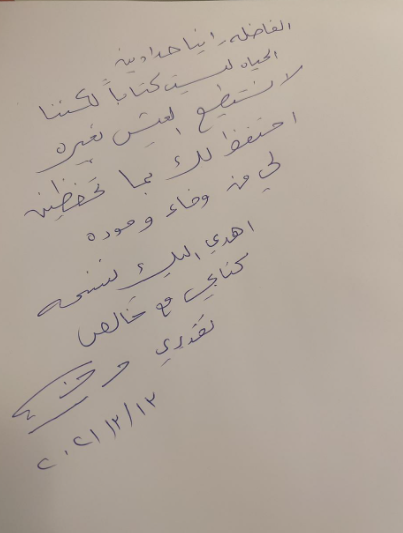 الفاضله رانيا حدادين
الحياه ليست كتاباً لكننا
لا نستطيع العيش بغيره
احتفظ لك بما تحفظين
لي من وفاء وموده
اهدي اليك نسخه
كتابي مع خالص
تقديري
٢٠٢١/٣/١٣